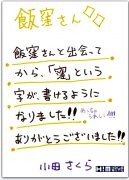 飯窪さん
飯窪さんと出会って
から、「窪」という
字が、書けるように
なりました!!
ありがとうございました!!
小田さくら